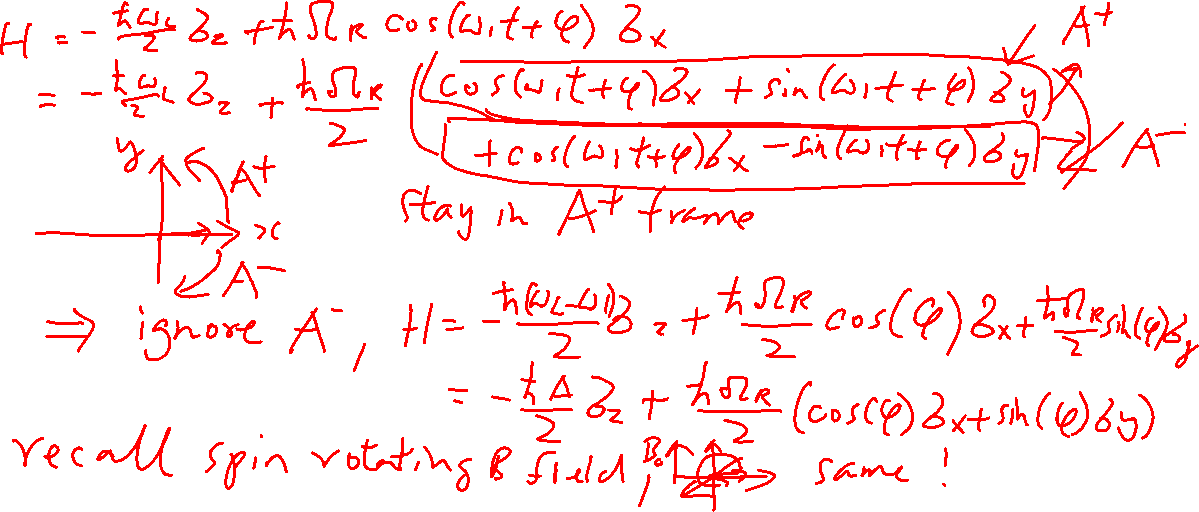 H = - ħω_L/2 σ_z + ħΩ_R cos(ω_1t+φ) σ_x A^+
= - ħω_L/2 σ_z + ħΩ_R/2 (cos(ω_1t+φ)σ_x + sin(ω_1t+φ)σ_y)
+cos(ω_1t+φ)σ_x - sin(ω_1t+φ)σ_y A^-
y A^+
stay in A^+ frame
x
A^-
⇒ ignore A^-, H = - ħ(ω_L-ω_1)/2 σ_z + ħΩ_R/2 cos(φ)σ_x + ħΩ_R/2 sin(φ)σ_y
= - ħΔ/2 σ_z + ħΩ_R/2 (cos(φ)σ_x+sin(φ)σ_y)
recall spin rotating B field, B_0 same!